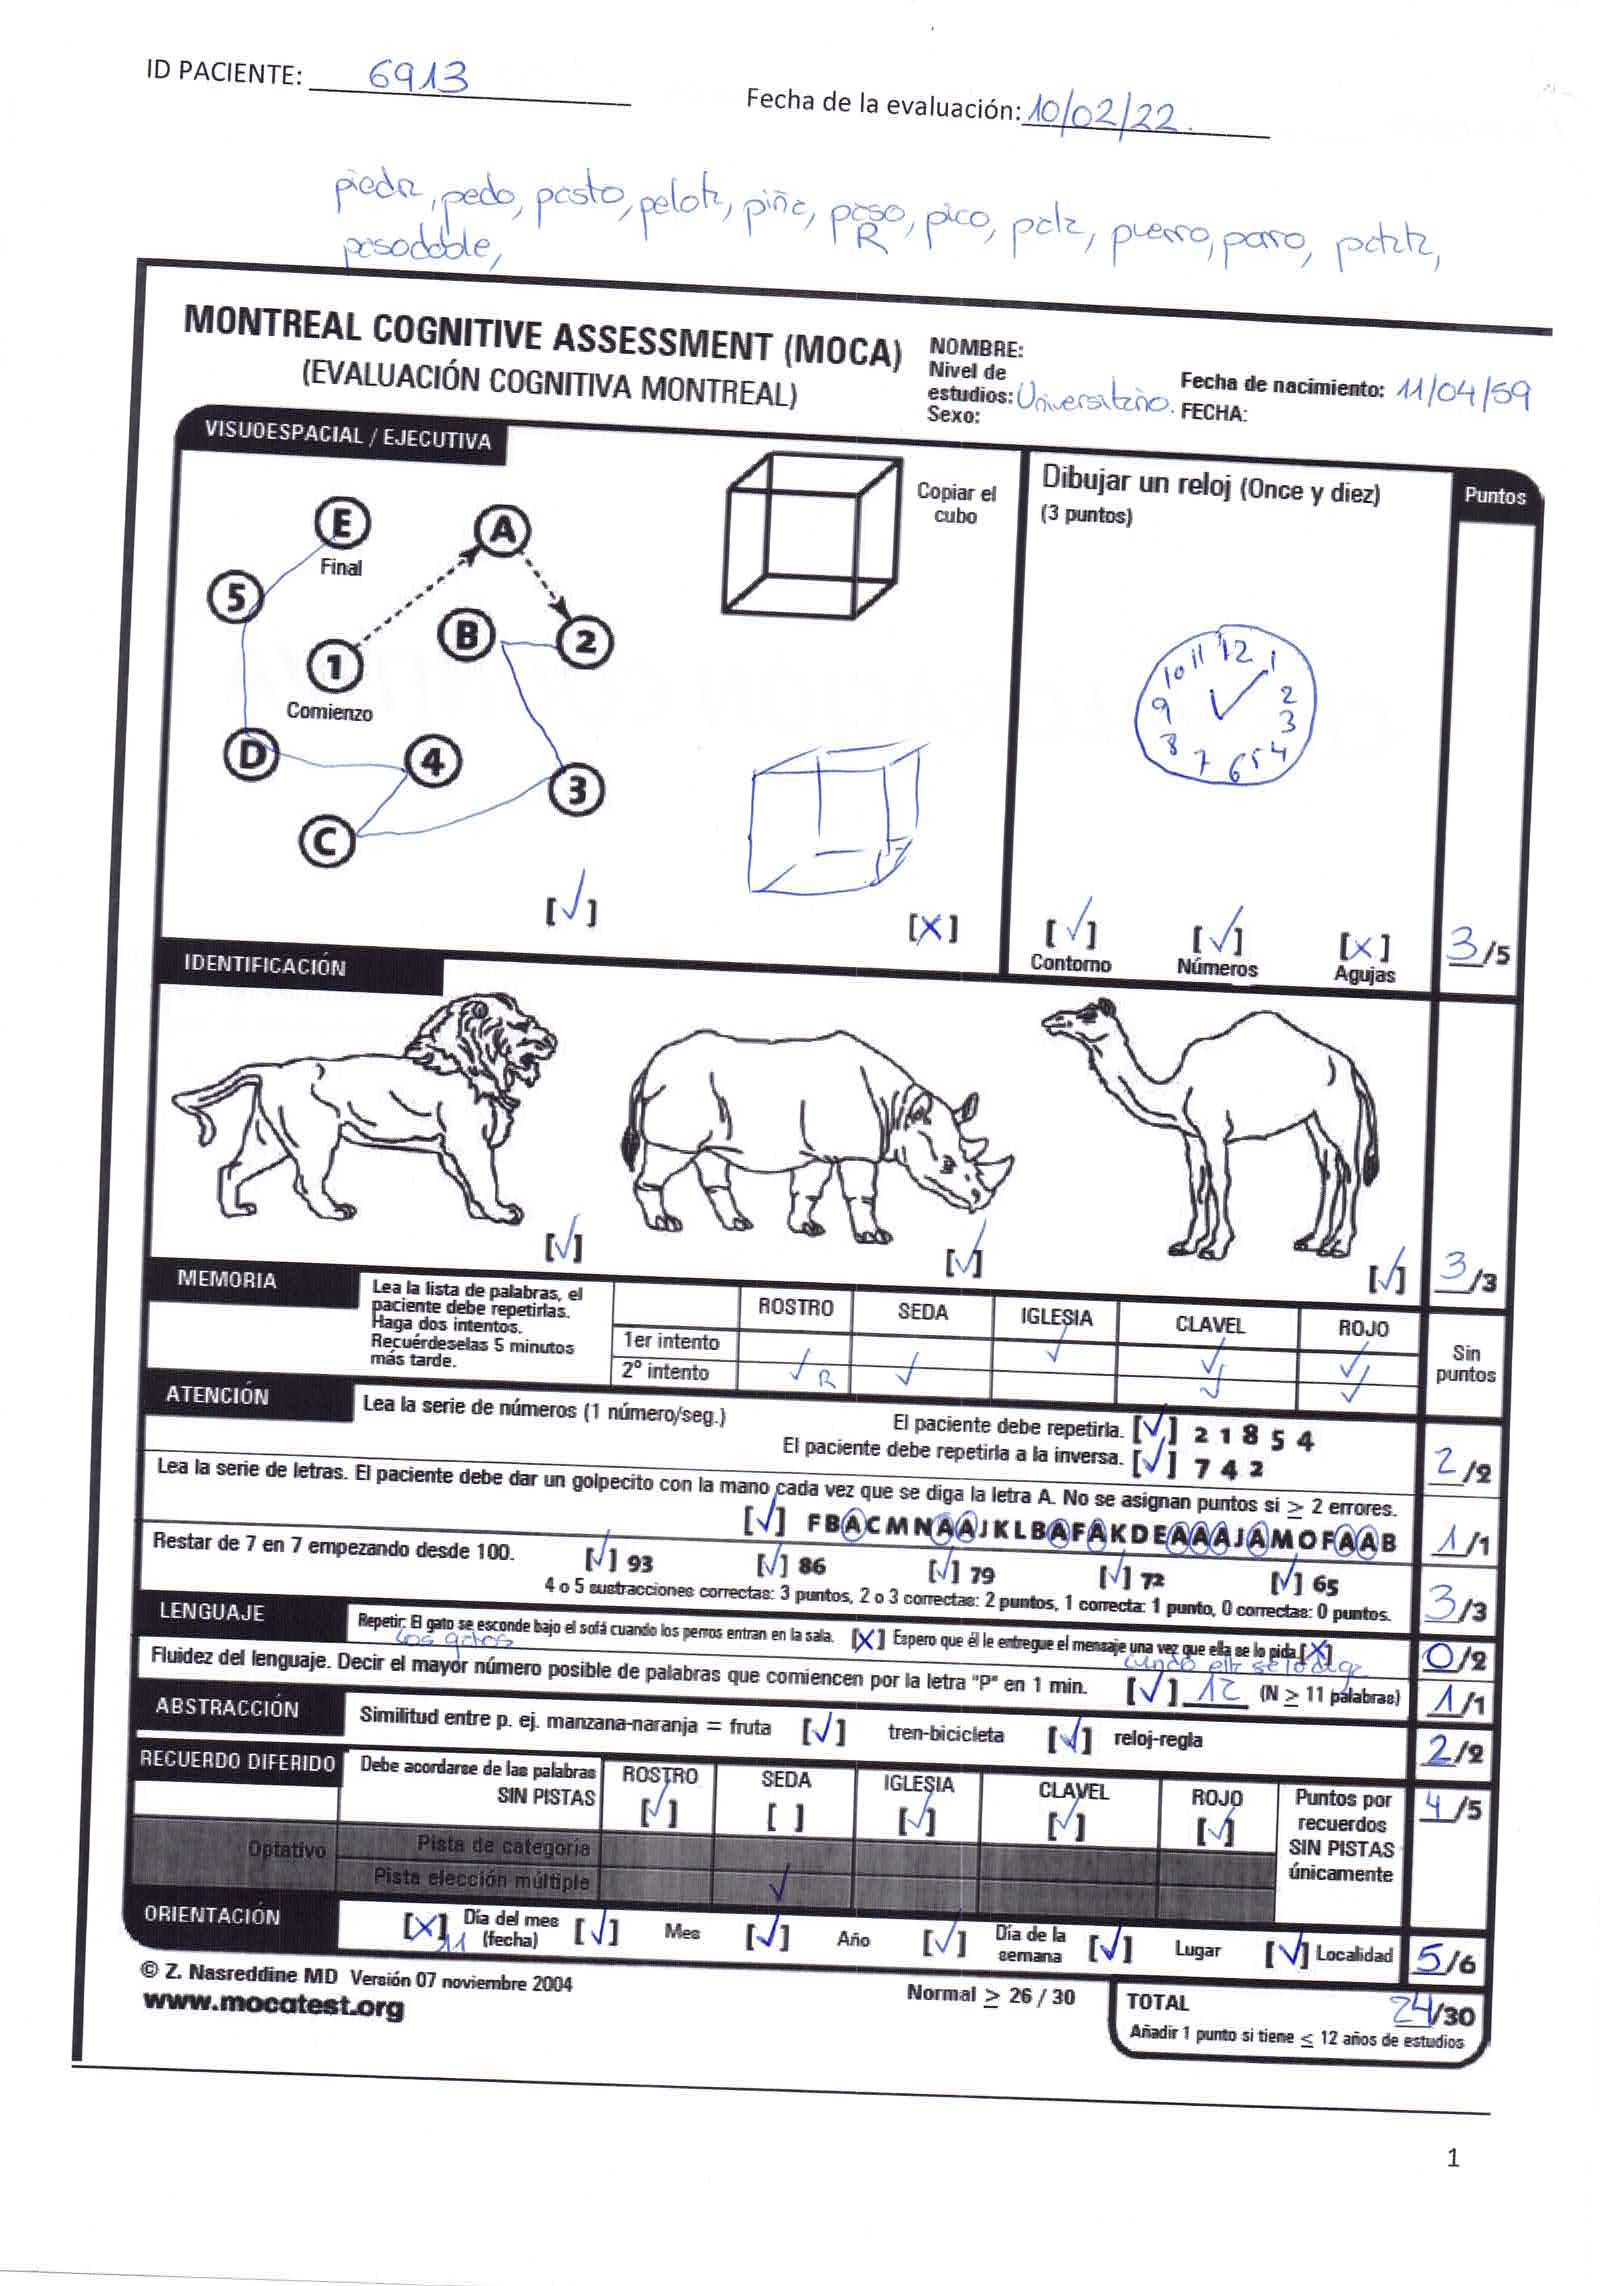 ID PACIENTE: 6913
Fecha de la evaluación: 10/02/22.
piedra, pedo, pasto, pelota, piña, paso, pico, pata, puerro, parro, patata,
R
pasodoble,
MONTREAL COGNITIVE ASSESSMENT (MOCA)
(EVALUACIÓN COGNITIVA MONTREAL)
NOMBRE:
Nivel de
estudios: Universitario.
Sexo:
Fecha de nacimiento: 11/04/59
FECHA:
VISUOESPACIAL / EJECUTIVA
E
Final
A
5
B
2
1
Comienzo
D
4
3
C
[✓]
Copiar el
cubo
[x]
Dibujar un reloj (Once y diez)
(3 puntos)
12 1 2 3 4 5 6 7 8 9 10 11
[✓] [✓] [x]
Contorno Números Agujas
Puntos
3/5
IDENTIFICACIÓN
[✓] [✓] [✓] 3/3
MEMORIA
Lea la lista de palabras, el
paciente debe repetirlas.
Haga dos intentos.
Recuérdeselas 5 minutos
más tarde.
ROSTRO SEDA IGLESIA CLAVEL ROJO
1er intento ✓ ✓ ✓
2º intento ✓ R ✓ ✓ ✓
Sin
puntos
ATENCIÓN
Lea la serie de números (1 número/seg.)
El paciente debe repetirla. [✓] 2 1 8 5 4
El paciente debe repetirla a la inversa. [✓] 7 4 2
2/2
Lea la serie de letras. El paciente debe dar un golpecito con la mano cada vez que se diga la letra A. No se asignan puntos si ≥ 2 errores.
[✓] F B A C M N A A J K L B A F A K D E A A A J A M O F A A B 1/1
Restar de 7 en 7 empezando desde 100. [✓] 93 [✓] 86 [✓] 79 [✓] 72 [✓] 65
4 o 5 sustracciones correctas: 3 puntos, 2 o 3 correctas: 2 puntos, 1 correcta: 1 punto, 0 correctas: 0 puntos. 3/3
LENGUAJE
Repetir: El gato se esconde bajo el sofá cuando los perros entran en la sala. [x] Espero que él le entregue el mensaje una vez que ella se lo pida. [x] 0/2
los gatos
cuando ella se lo diga
Fluidez del lenguaje. Decir el mayor número posible de palabras que comiencen por la letra "P" en 1 min. [✓] 12 (N ≥ 11 palabras) 1/1
ABSTRACCIÓN
Similitud entre p. ej. manzana-naranja = fruta [✓] tren-bicicleta [✓] reloj-regla 2/2
RECUERDO DIFERIDO
Debe acordarse de las palabras
SIN PISTAS
ROSTRO SEDA IGLESIA CLAVEL ROJO
[✓] [ ] [✓] [✓] [✓]
Puntos por
recuerdos
SIN PISTAS
únicamente
4/5
Optativo
Pista de categoría
Pista elección múltiple ✓
ORIENTACIÓN
[x] Día del mes
(fecha)
11
[✓] Mes [✓] Año [✓] Día de la
semana
[✓] Lugar [✓] Localidad 5/6
© Z. Nasreddine MD Versión 07 noviembre 2004
www.mocatest.org
Normal ≥ 26 / 30
TOTAL 24/30
Añadir 1 punto si tiene ≤ 12 años de estudios
1